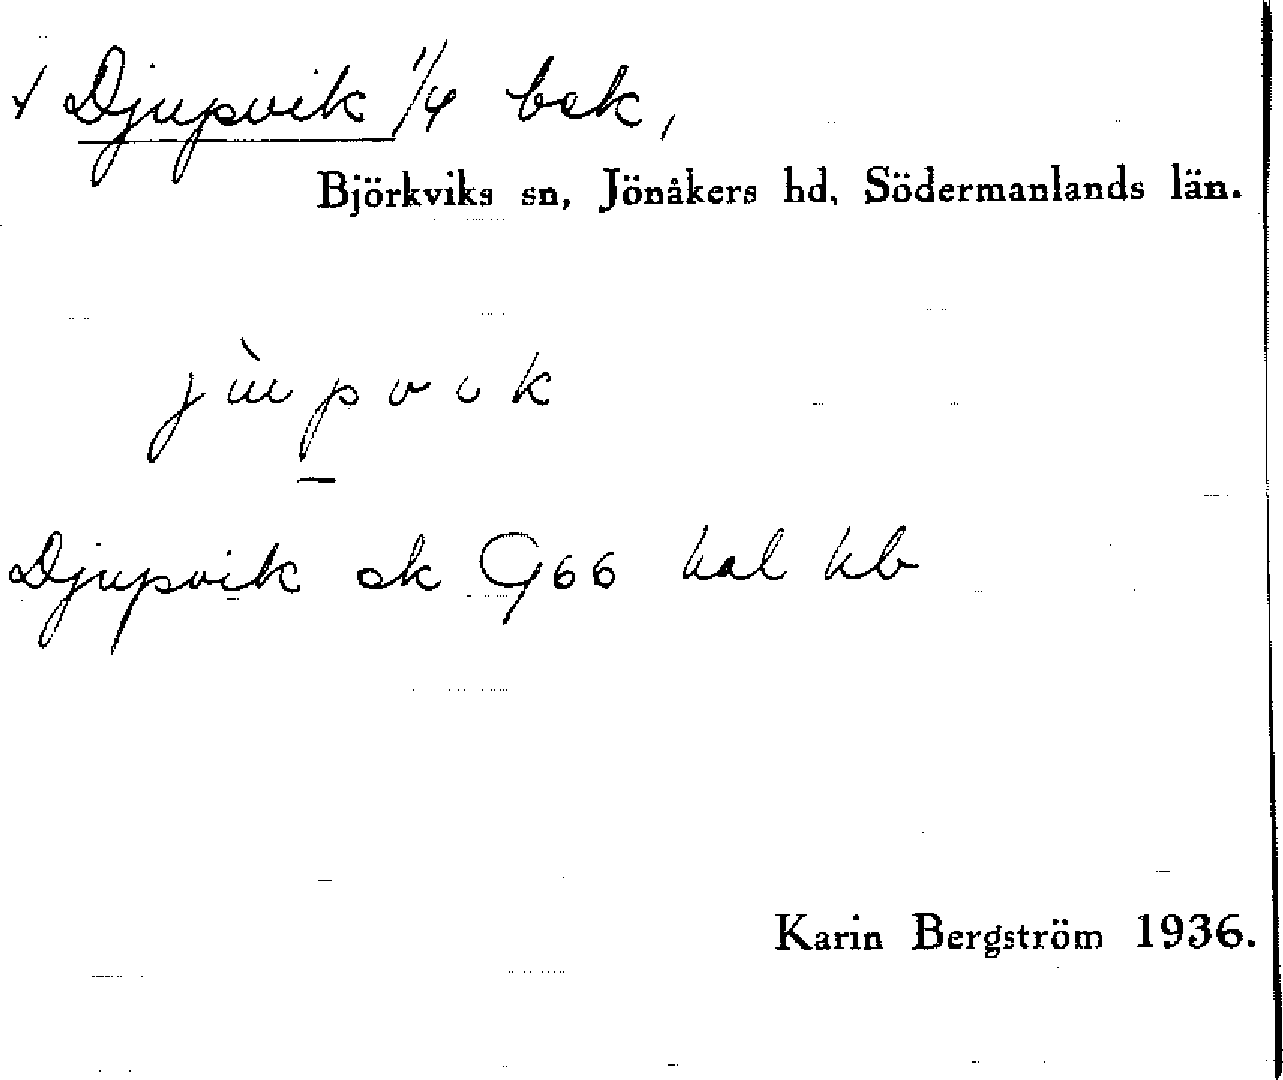 √ Djupvik 1/4 bek,
Björkviks sn, Jönåkers hd, Södermanlands län.
jùpvik
Djupvik ek G66 hal kb
Karin Bergström 1936.